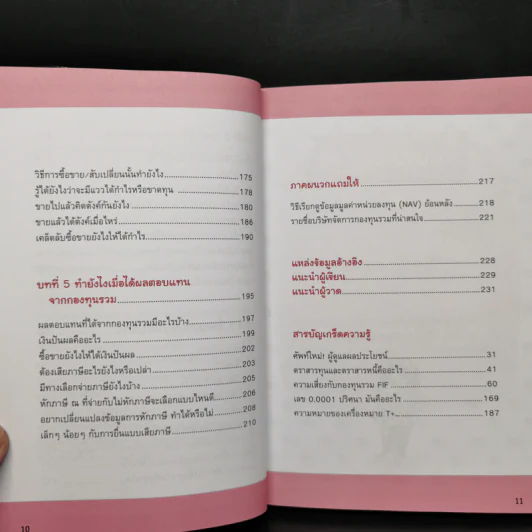 วิธีการซื้อขาย/สับเปลี่ยนนั้นทำยังไง.......................175
รู้ได้ยังไงว่าจะมีแววได้กำไรหรือขาดทุน ....................178
ขายไปแล้วคิดตังค์กันยังไง ....................................180
ขายแล้วได้ตังค์เมื่อไหร่.........................................186
เคล็ดลับซื้อขายยังไงให้ได้กำไร...............................190
บทที่ 5 ทำยังไงเมื่อได้ผลตอบแทน
จากกองทุนรวม........................................195
ผลตอบแทนที่ได้จากกองทุนรวมมีอะไรบ้าง................197
เงินปันผลคืออะไร ................................................199
ซื้อขายยังไงให้ได้เงินปันผล ...................................202
ต้องเสียภาษีอะไรยังไงหรือเปล่า .............................203
มีทางเลือกจ่ายภาษียังไงบ้าง .................................205
หักภาษี ณ ที่จ่ายกับไม่หักภาษีจะเลือกแบบไหนดี.......206
อยากเปลี่ยนแปลงข้อมูลการหักภาษี ทำได้หรือไม่ ......208
เล็กๆ น้อยๆ กับการยื่นแบบเสียภาษี.........................210
10
ภาคผนวกแถมให้ ........................................217
วิธีเรียกดูข้อมูลมูลค่าหน่วยลงทุน (NAV) ย้อนหลัง ......218
รายชื่อบริษัทจัดการกองทุนรวมที่น่าสนใจ..................221
แหล่งข้อมูลอ้างอิง .......................................228
แนะนำผู้เขียน..............................................229
แนะนำผู้วาด................................................231
สารบัญเกร็ดความรู้
ศัพท์ใหม่! ผู้ดูแลผลประโยชน์....................................31
ตราสารทุนและตราสารหนี้คืออะไร .............................41
ความเสี่ยงกับกองทุนรวม FIF ....................................60
เลข 0.0001 ปริศนา มันคืออะไร ................................169
ความหมายของเครื่องหมาย T+..................................187
11